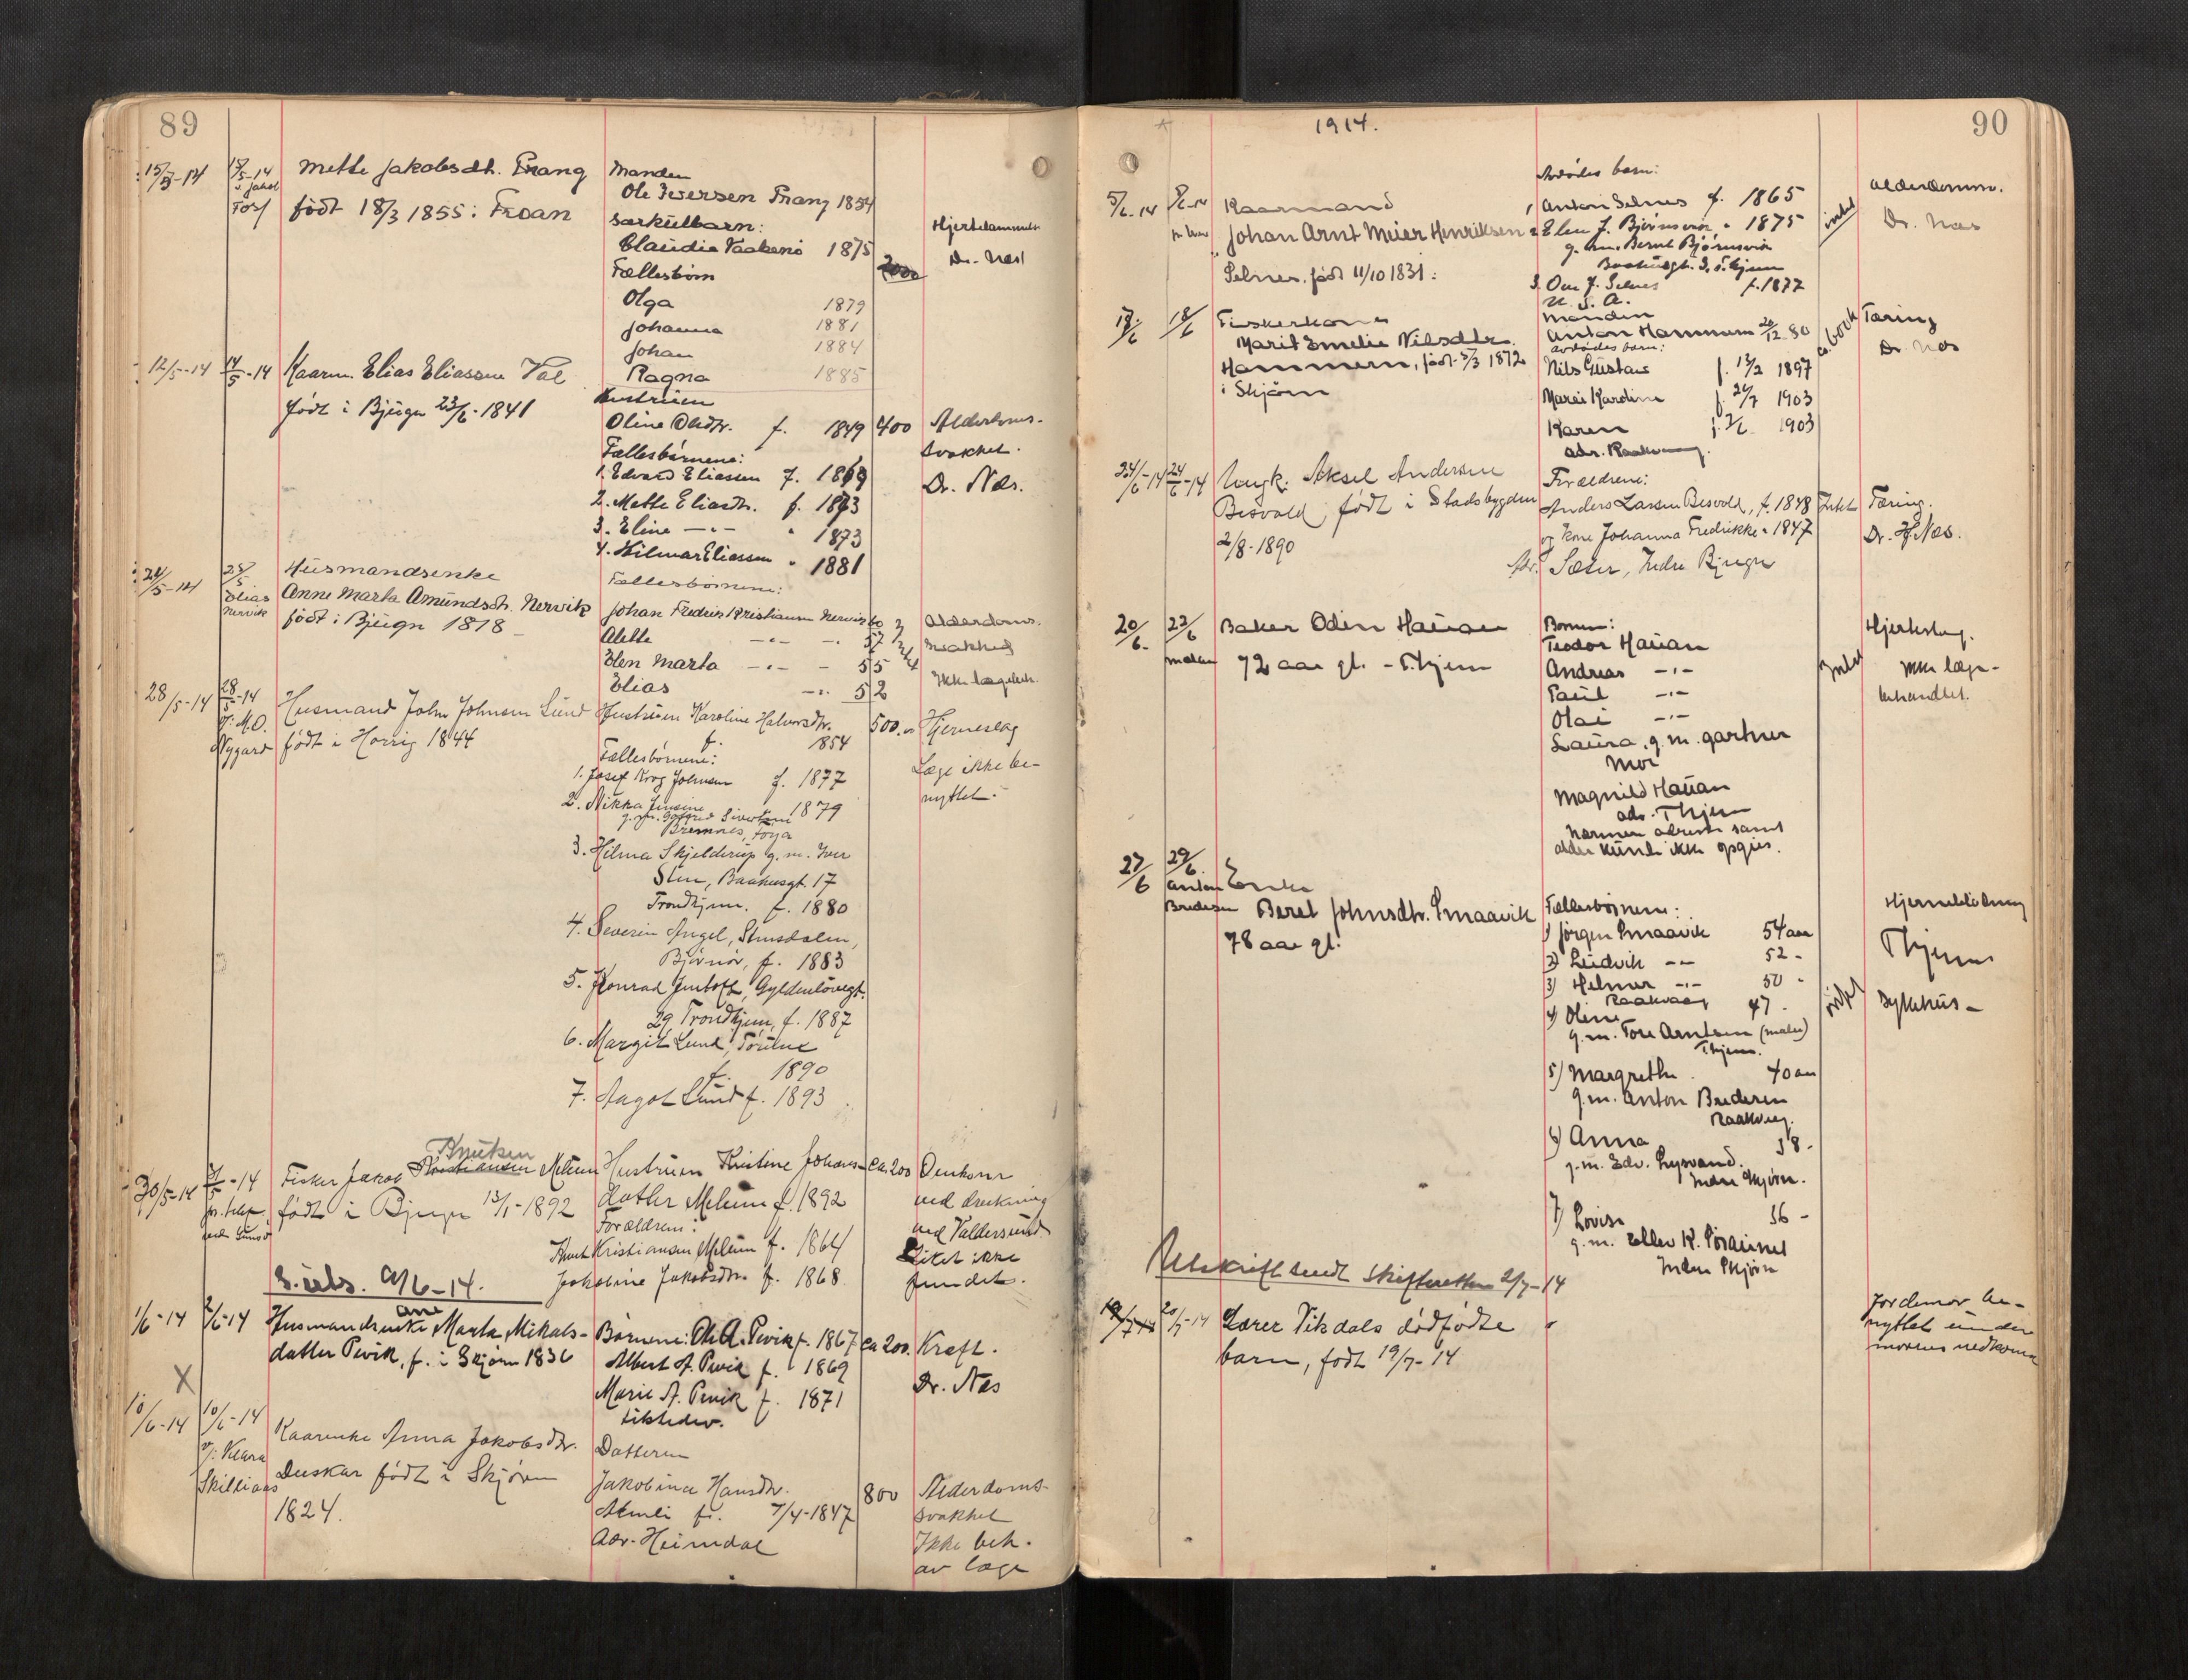 89
15/5-14
15/5-14
Mette Jakobsdt. Frang
født 18/3 1855 i Froan
Manden
Ole Iversen Frang 1854
Særkulbarn:
Claudia 1875
Fællesbørn
Olga 1879
Johanna 1881
Johan 1884
Ragna 1885
2000
Hjertelammelse
Dr. Næs
12/5-14
14/5-14
Kaarm. Elias Eliassen Val
født i Bjugn 23/6-1841
Hustruen
Oline Olsdtr. f. 1849
Fællesbørnene:
1. Edvard Eliassen f. 1869
2. Mette Eliasdtr. f. 1873
3. Eline -"- " 1873
4. Hilmar Eliassen " 1881
400
Alderdoms-
svakhet.
Dr. Næs.
24/5-14
25/5
Elias
Nervik
Husmandsenke
Anne Marta Amundsdt. Nervik
født i Bjugn 1818
Fællesbørnene:
Johan Fredrik Kristiansen Nervik 60
Alette -"- -"- 57
Elen Marta -"- - 55
Elias -"- 52
Alderdoms-
svakhed
Ikke lægebeh.
28/5-14
28/5-14
v. M.O.
Nygard
Husmand John Johnsen Lund
født i Horrig 1844
Hustruen Karoline Halvorsdtr.
f. 1854
Fællesbørnene:
1. Josef Krog Johnsen f. 1877
2. Nikka Jensine 1879
g.m. Gotfred Sivertsen
Bremnes, Foya
3. Hilma Skjelderup g.m. Iver
Sten, Baahusgt. 17
Trondhjem. f. 1880
4. Severin Angel, Stensdalen,
Bjørnør, f. 1883
5. Konrad Jentoft, Gyldenløvesgt.
29 Trondhjem, f. 1887
6. Margit Lund,
f. 1890
7. Aagot Lund f. 1893
500.00
Hjerneslag
Læge ikke be-
nyttet.
30/5-14
31/5-14
pr. telef.
Knutsen
Fisker Jakob Kristiansen Melum
født i Bjugn 13/1-1892
Hustruen Kristine Johans-
datter Melum f. 1892
Forældrene:
Knut Kristiansen Melum f. 1864
Jakobine Jakobsdtr. f. 1868
ca. 200
Omkom
ved drukning
ved Valdersund.
Liket ikke
fundet.
S. uts. 9/6-14.
1/6-14
2/6-14
Husmandsenke Ane Marta Mikals-
datter Pevik, f. i Skjørn 1836
Børnene: Ole A. Pevik f. 1867
Albert A. Pevik f. 1869
Marie A. Pevik f. 1871
ca 200.
Kræft.
Dr. Næs
X
10/6-14
10/6-14
v/: Klara
Kaarenke Anna Jakobsdtr.
Duskar født i Skjørn
1824.
Datteren
Jakobina Hansdtr.
Almli f. 7/4-1847
Adr. Heimdal
800
Alderdoms-
svakhet
Ikke beh.
av læge
90
1914.
5/6-14
8/6-14
Kaarmand
Johan Arnt Meier Henriksen
Selnes, født 11/10 1831.
Avdødes barn:
1, Anton Selnes f. 1865
2 Elen J. Bjørnsviør " 1875
g.m. Bernt Bjørnsviør
Baahusgt. 3, T.hjem
3. Ove J. Selnes f. 1877
U.S.A.
intet
Alderdomm.
Dr. Næs
17/6
18/6
Fiskerkone
Marit Emelie Nilsdtr.
Hammern, født 3/3 1872
i Skjørn
Manden
Anton Hammern 20/12 80
avdødes barn:
Nils Gustav f. 13/2 1897
Marei Kardine f. 24/7 1903
Karen 1903
adr. Raakvaag.
Tæring
Dr. Næs
24/6-14
24/6-14
Ungk. Aksel Andersen
Besvold, født i Stadsbygden
2/8-1890
Forældrene:
Anders Larsen Besvold, f. 1848
og kone Johanna Fredrikke " 1847
Adr. Sæter, Indre Bjugn
Intet
Tæring.
Dr. H. Næs.
20/6-
23/6
Baker Odin Hauan
72 aar gl. - T.hjem
Børnene:
Teodor Hauan
Andreas -"-
Paul -"-
Olai -"-
Laura, g.m. gartner
Moe
Magnild Hauan
adr. T.hjem
nærmere adresse samt
alder kunde ikke opgives.
Intet
Hjerteslag.
Ikke læge-
behandlet.
27/6
29/6.
Anton
Bredesen
Enke
Beret Johnsdtr. Smaavik
78 aar gl.
Fællesbørnene:
1) Jørgen Smaavik 54 aar
2) Ludvik -"- 52 -
3) Helmer -"- 50 -
Raakvaag
4) Oline 47.
g.m. Tore Arntsen (maler)
T.hjem.
5) Margrethe 40 aar
g.m. Anton Bredesen
Raakvaag.
6) Anna 38.
g.m. Edv. Lysvand.
Indre Skjørn.
7) Lovise 36 -
g.m.
Indre Skjørn
intet
Hjerneblødning
T.hjems
sykehus -
Utskrift sendt Skifteretten 2/7-14
19/7-14
20/7-14
Lærer Vikdals dødfødte
barn, født 19/7-14
Jordemor be-
nyttet under
morens nedkomst